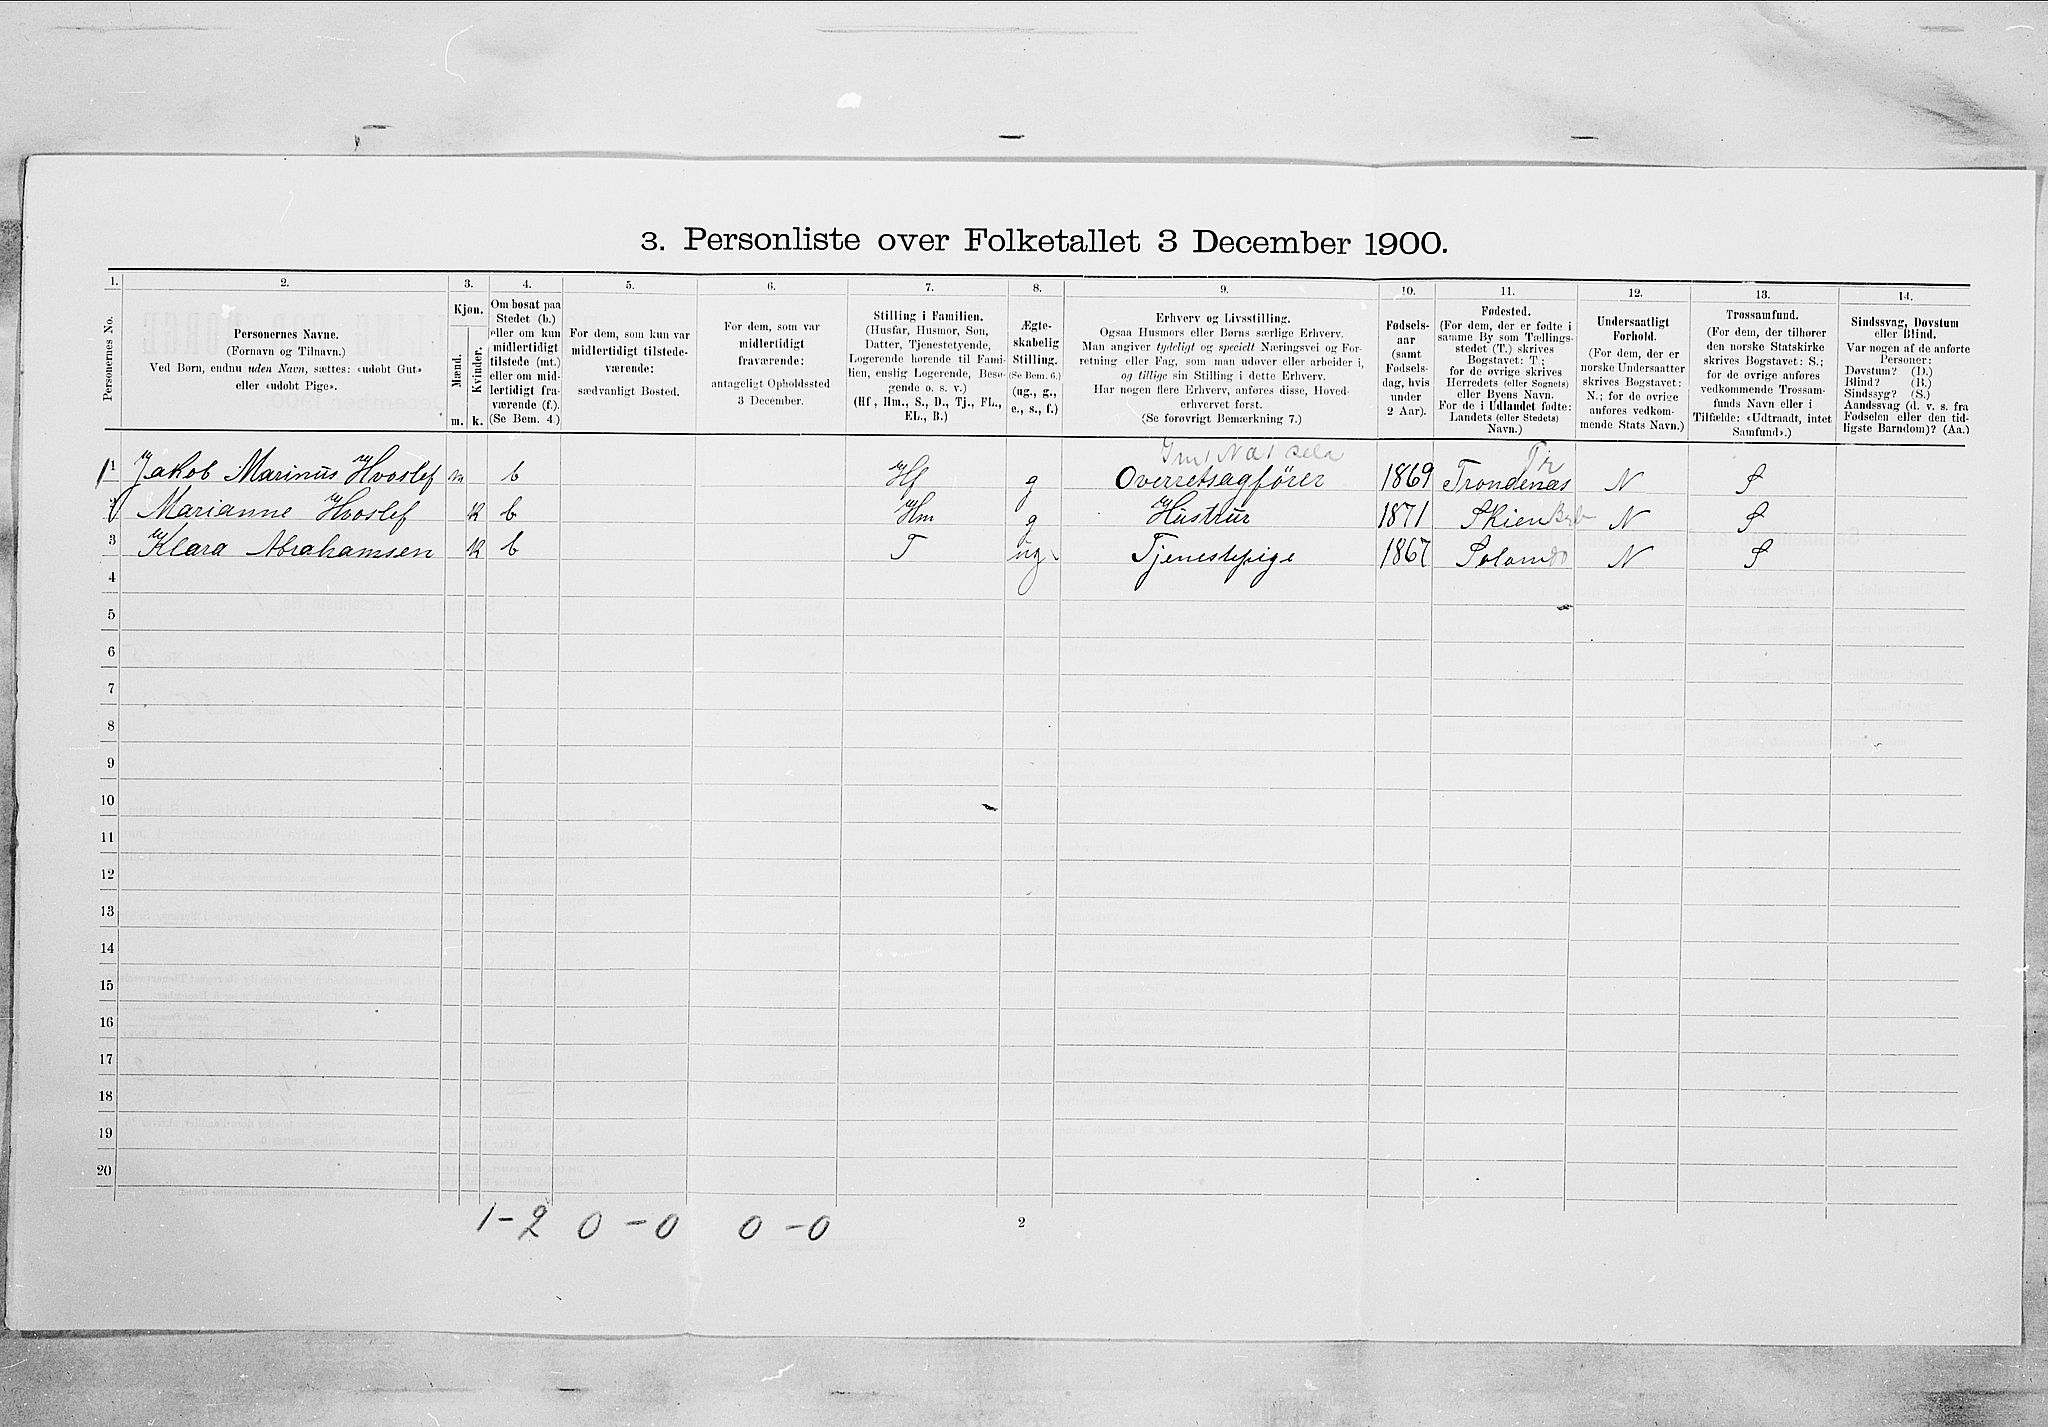 3. Personliste over Folketallet 3 December 1900.
1. 2. 3. 4. 5. 6. 7. 8. 9. 10. 11. 12. 13. 14.
Personernes No.
Personernes Navne.
(Fornavn og Tilnavn.)
Ved Børn, endnu uden Navn, sættes: «udøbt Gut»
eller «udøbt Pige».
Kjøn.
Mænd.
Kvinder.
m. k.
Om bosat paa
Stedet (b.)
eller om kun
midlertidigt
tilstede (mt.)
eller om mid-
lertidigt fra-
værende (f.).
(Se Bem. 4.)
For dem, som kun var
midlertidigt tilstede-
værende:
sædvanligt Bosted.
For dem, som var
midlertidigt
fraværende:
antageligt Opholdssted
3 December.
Stilling i Familien.
(Husfar, Husmor, Søn,
Datter, Tjenestetyende,
Logerende hørende til Fami-
lien, enslig Logerende, Besø-
gende o. s. v.)
(Hf, Hm., S., D., Tj., FL.,
EL., B.)
Ægte-
skabelig
Stilling.
(Se Bem. 6.)
(ug., g.,
e., s., f.)
Erhverv og Livsstilling.
Ogsaa Husmors eller Børns særlige Erhverv.
Man angiver tydeligt og specielt Næringsvei og For-
retning eller Fag, som man udøver eller arbeider i,
og tillige sin Stilling i dette Erhverv.
Har nogen flere Erhverv, anføres disse, Hoved-
erhvervet først.
(Se forøvrigt Bemærkning 7.)
Fødsels-
aar
(samt
Fødsels-
dag, hvis
under
2 Aar).
Fødested.
(For dem, der er fødte i
samme By som Tællings-
stedet (T.) skrives
Bogstavet: T.;
for de øvrige skrives
Herredets (eller Sognets)
eller Byens Navn.
For de i Udlandet fødte:
Landets (eller Stedets)
Navn.)
Undersaatligt
Forhold.
(For dem, der er
norske Undersaatter
skrives Bogstavet:
N.; for de øvrige
anføres vedkom-
mende Stats Navn.)
Trossamfund.
(For dem, der tilhører
den norske Statskirke
skrives Bogstavet: S.;
for de øvrige anføres
vedkommende Trossam-
funds Navn eller i
Tilfælde: «Udtraadt, intet
Samfund».)
Sindssvag, Døvstum
eller Blind.
Var nogen af de anførte
Personer:
Døvstum? (D.)
Blind? (B.)
Sindssyg? (S.)
Aandssvag (d. v. s. fra
Fødselen eller den tid-
ligste Barndom)? (Aa.)
1 Jakob Marinus Hvoslef m b Hf g Overretsagfører 1869 Trondenæs Tr N S
2 Marianne Hvoslef k b Hm g Hustrur 1871 Skien N S
3 Klara Abrahamsen k b T ug. Tjenestepige 1867 N S
4
5
6
7
8
9
10
11
12
13
14
15
16
17
18
19
20
1-2 0-0 0-0
2